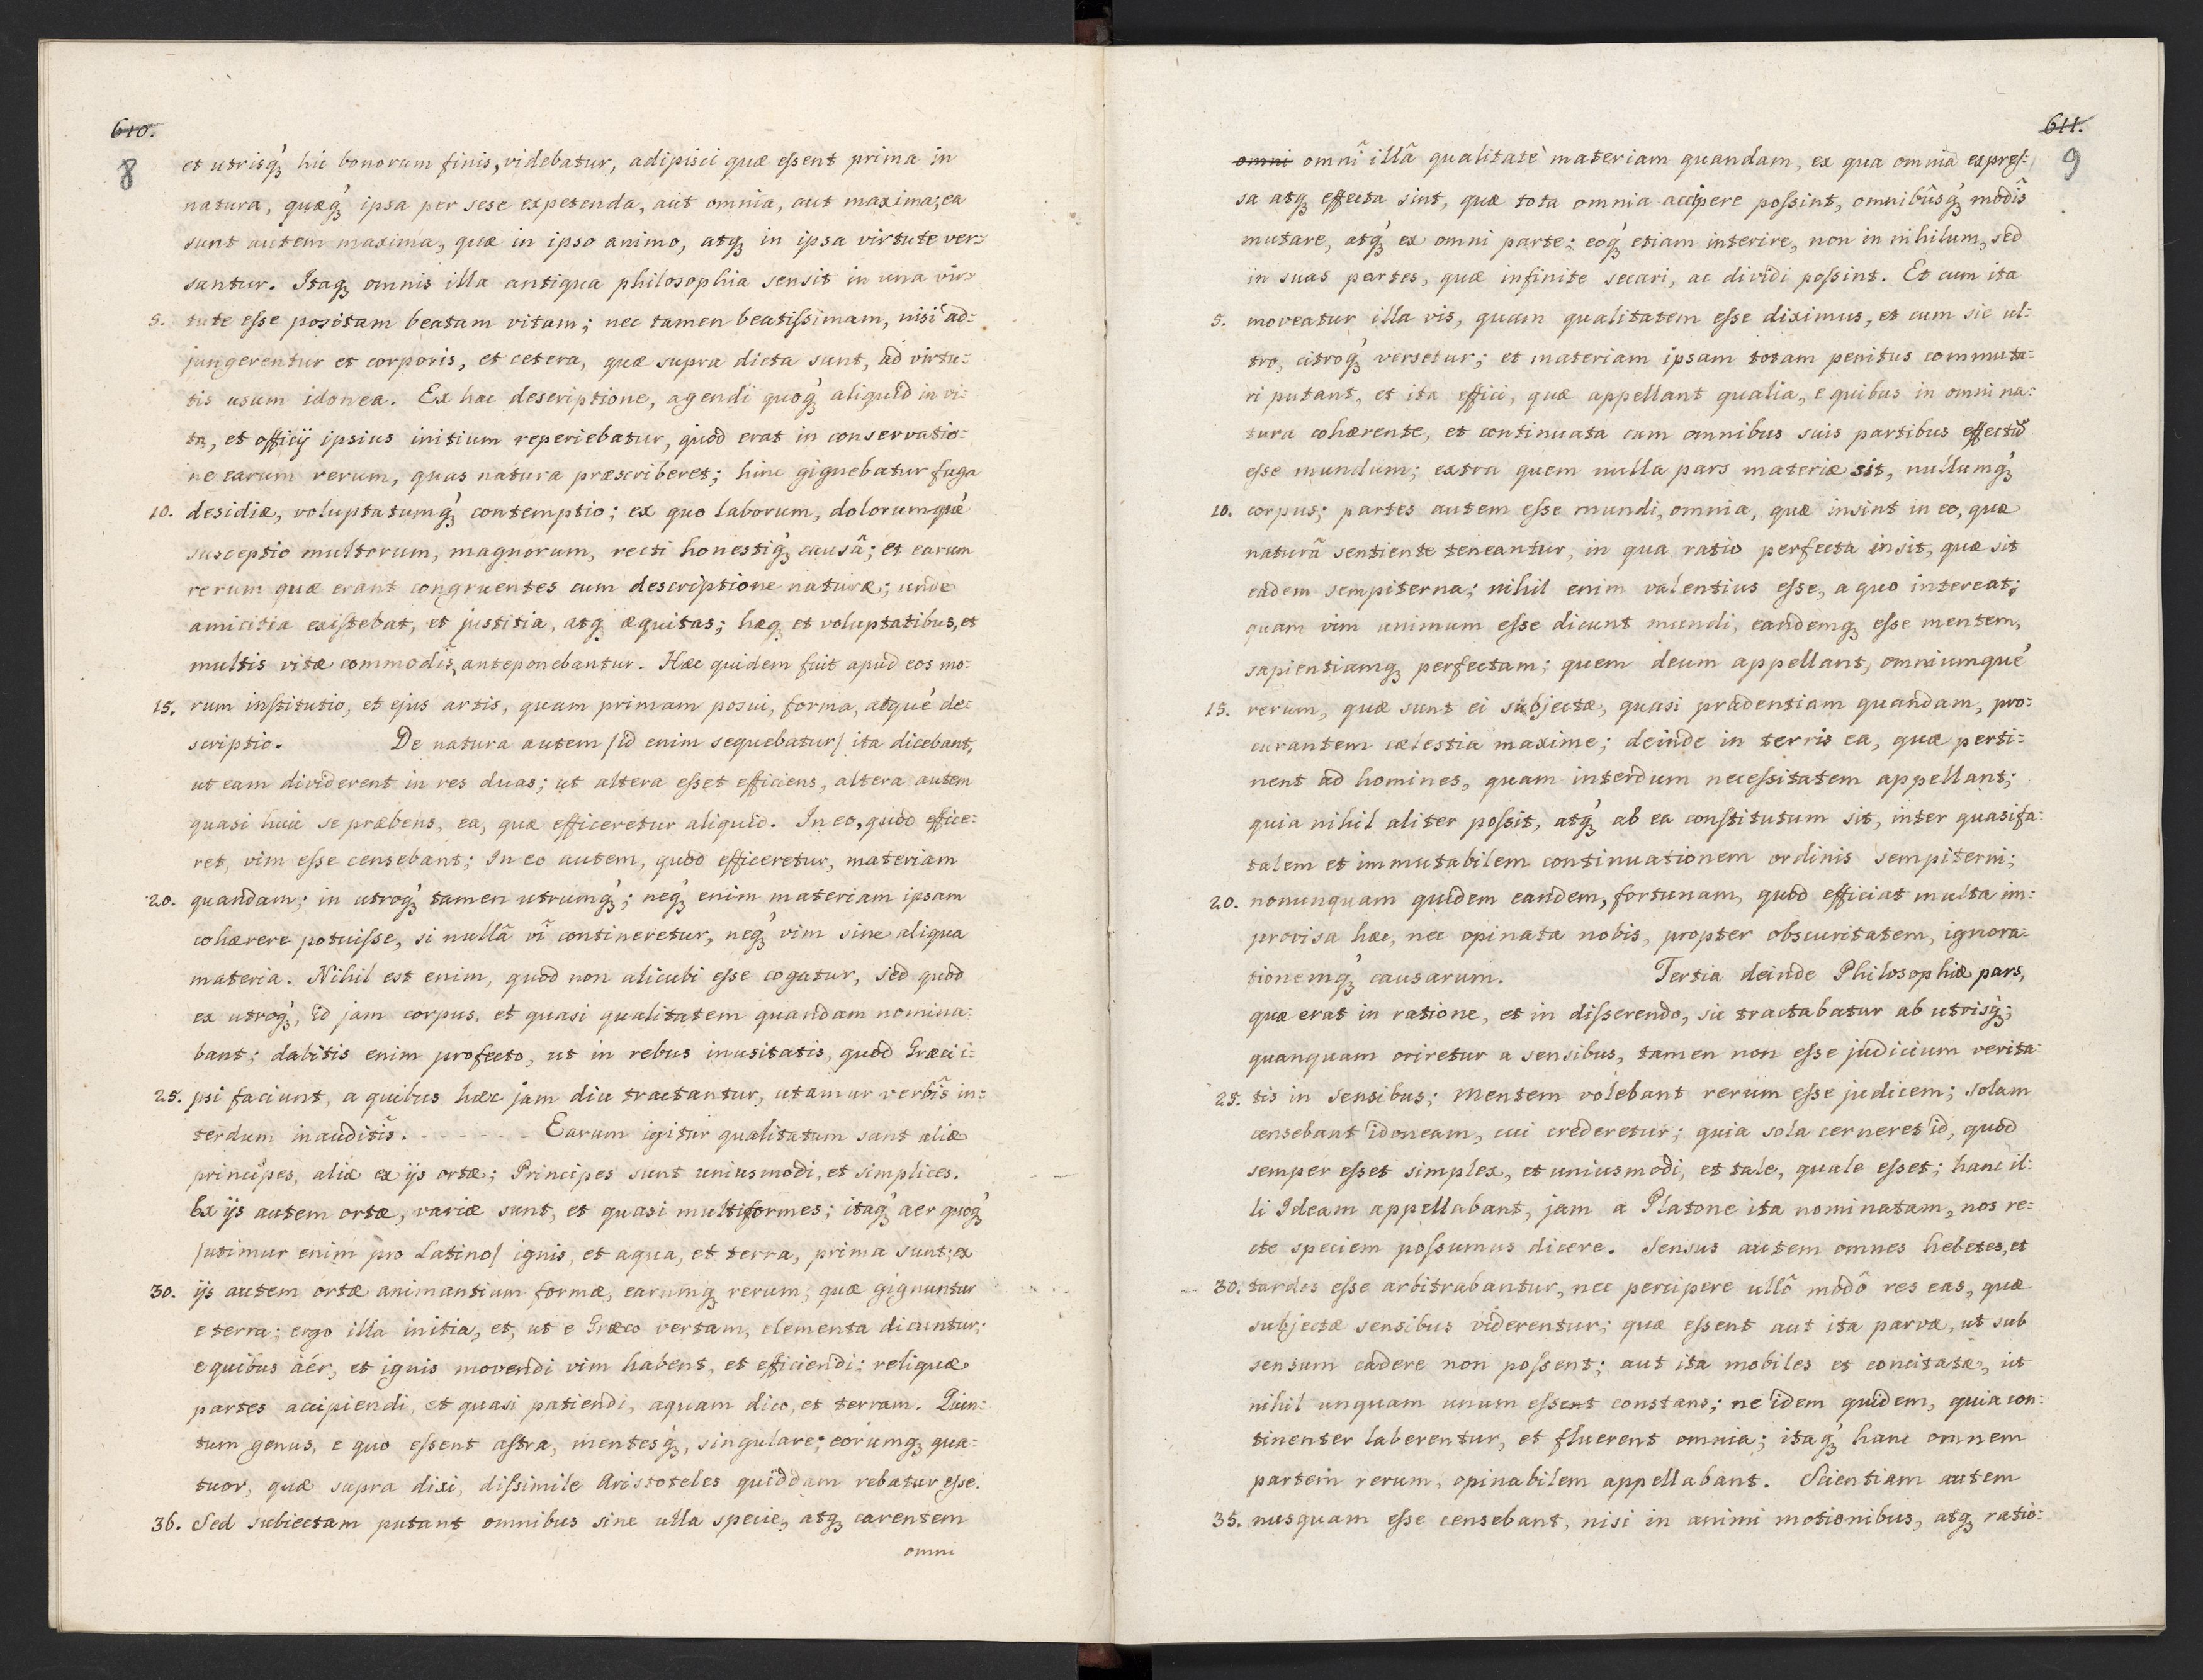 610.
8
et utrisq́ꝫ hic bonorum finis, videbatur, adipisci quæ eſsent prima in
natura, quæq́ꝫ ipsa per sese expetenda, aut omnia, aut maxima; ea
sunt autem maxima, quæ in ipso animo, atqꝫ in ipsa virtute ver=
santur. Itaqꝫ omnis illa antiqua philosophia sensit in una vir=
5. tute eſse positam beatam vitam; nec tamen beatiſsimam, nisi ad=
jungerentur et corporis, et cetera, quæ supra dicta sunt, ad virtu=
tis usum idonea. Ex hac descriptione, agendi quoq́ꝫ aliquid in vi=
ta, et officÿ ipsius initium reperiebatur, quod erat in conservatio=
ne earum rerum, quas natura præscriberet; hinc gignebatur fuga
10. desidiæ, voluptatumq́ꝫ contemptio; ex quo laborum, dolorumqué
susceptio multorum, magnorum, recti honestiq́ꝫ causâ; et earum
rerum quæ erant congruentes cum descriptione naturæ; unde
amicitia exiſtebat, et justitia, atqꝫ æquitas; hæqꝫ et voluptatibus, et
multis vitæ commodis̃, anteponebantur. Hæc quidem fuit apud eos mo=
15. rum inſtitutio, et ejus artis, quam primam posui, forma, atqué de=
scriptio. De natura autem /id enim sequebatur/ ita dicebant,
ut eam dividerent in res duas; ut altera eſset efficiens, altera autem
quasi huic se præbens, ea, quæ efficeretur aliquid. In eo, quod effice=
ret, vim eſse censebant; In eo autem, quod efficeretur, materiam
20. quandam; in utroq́ꝫ tamen utrumq́ꝫ; neq́ꝫ enim materiam ipsam
cohærere potuiſse, si nullâ vî contineretur, neq́ꝫ vim sine aliqua
materia. Nihil est enim, quod non alicubi eſse cogatur, sed quod
ex utroq́ꝫ, id jam corpus, et quasi qualitatem quandam nomina=
bant; dabitis enim profecto, ut in rebus inusitatis, quod Græci i=
25. psi faciunt, a quibus hæc jam diu tractantur, utamur verbis̃ in=
terdum inauditis̃. - - - - - - - Earum igitur qualitatum sunt aliæ
principes, aliæ ex ÿs ortæ; Principes sunt uniusmodi, et simplices.
Ex ÿs autem ortæ, variæ sunt, et quasi multiformes; itaq́ꝫ aer quoq́ꝫ
/utimur enim pro Latino/ ignis, et aqua, et terra, prima sunt; ex
30. ÿs autem ortæ animantium formæ, earumqꝫ rerum, quæ gignuntur
e terra; ergo illa initia, et, ut e Græco vertam, elementa dicuntur;
e quibus äér, et ignis movendi vim habent, et efficiendi; reliquæ
partes accipiendi, et quasi patiendi, aquam dico, et terram. Quin=
tum genus, e quo eſsent aſtra, mentesq́ꝫ, singulare; eorumqꝫ qua=
tuor, quæ supra dixi, diſsimile Aristoteles quiddam rebatur eſse.
36. Sed subiectam putant omnibus sine ulla specie, atqꝫ carentem
omni
611.
9
omni omnî illâ qualitatè materiam quandam, ex qua omnia expreſ=
sa atqꝫ effecta sint, quæ tota omnia accipere poſsint, omnibûsq́ꝫ modis̃
mutare, atq́ꝫ ex omni parte; eoq́ꝫ etiam interire, non in nihilum, sed
in suas partes, quæ infinite secari, ac dividi poſsint. Et cum ita
5. moveatur illa vis, quam qualitatem eſse diximus, et cum sic ul=
tro, citroq́ꝫ versetur; et materiam ipsam totam penitus commuta=
ri putant, et ita effici, quæ appellant qualia, e quibus in omni na=
tura cohærente, et continuata cum omnibus suis partibus effectū
eſse mundum; extra quem nulla pars materiæ sit, nullumq́ꝫ
10. corpus; partes autem eſse mundi, omnia, quæ insint in eo, quæ
naturâ sentiente teneantur, in qua ratio perfecta insit, quæ sit
eadem sempiterna; nihil enim valentius eſse, a quo intereat;
quam vim animum eſse dicunt mundi, eandemqꝫ eſse mentem,
sapientiamqꝫ perfectam; quem deum appellant, omniumqué
15. rerum, quæ sunt ei subjectæ, quasi prudentiam quandam, pro=
curantem cælestia maxime; deinde in terris ea, quæ perti=
nent ad homines, quam interdum neceſsitatem appellant;
quia nihil aliter poſsit, atq́ꝫ ab ea conſtitutum sit, inter quasi fa=
talem et immutabilem continuationem ordinis sempiterni;
20. nonunquam quidem eandem, fortunam, quod efficiat multa im=
provisa hæc, nec opinata nobis, propter obscuritatem, ignora=
tionemq́ꝫ causarum. Tertia deinde Philosophiæ pars,
quæ erat in ratione, et in diſserendo, sic tractabatur ab utrisq́ꝫ;
quanquam oriretur a sensibus, tamen non eſse judicium verita=
25. tis in sensibus; Mentem volebant rerum eſse judicem; solam
censebant idoneam, cui crederetur; quia sola cerneret id, quod
semper eſset simplex, et uniusmodi, et tale, quale eſset; hanc il=
li Ideam appellabant, jam a Platone ita nominatam, nos re=
cte speciem poſsumus dicere. Sensus autem omnes hebetes, et
30. tardos eſse arbitrabantur, nec percipere ullô modô res eas, quæ
subjectæ sensibus viderentur; quæ eſsent aut ita parvæ, ut sub
sensum cadere non poſsent; aut ita mobiles et concitatæ, ut
nihil unquam unum eſsent constans; ne idem quidem, quia con=
tinenter laberentur, et fluerent omnia; itaq́ꝫ hanc omnem
partem rerum, opinabilem appellabant. Scientiam autem
35. nusquam eſse censebant, nisi in animi motionibus, atqꝫ ratio=